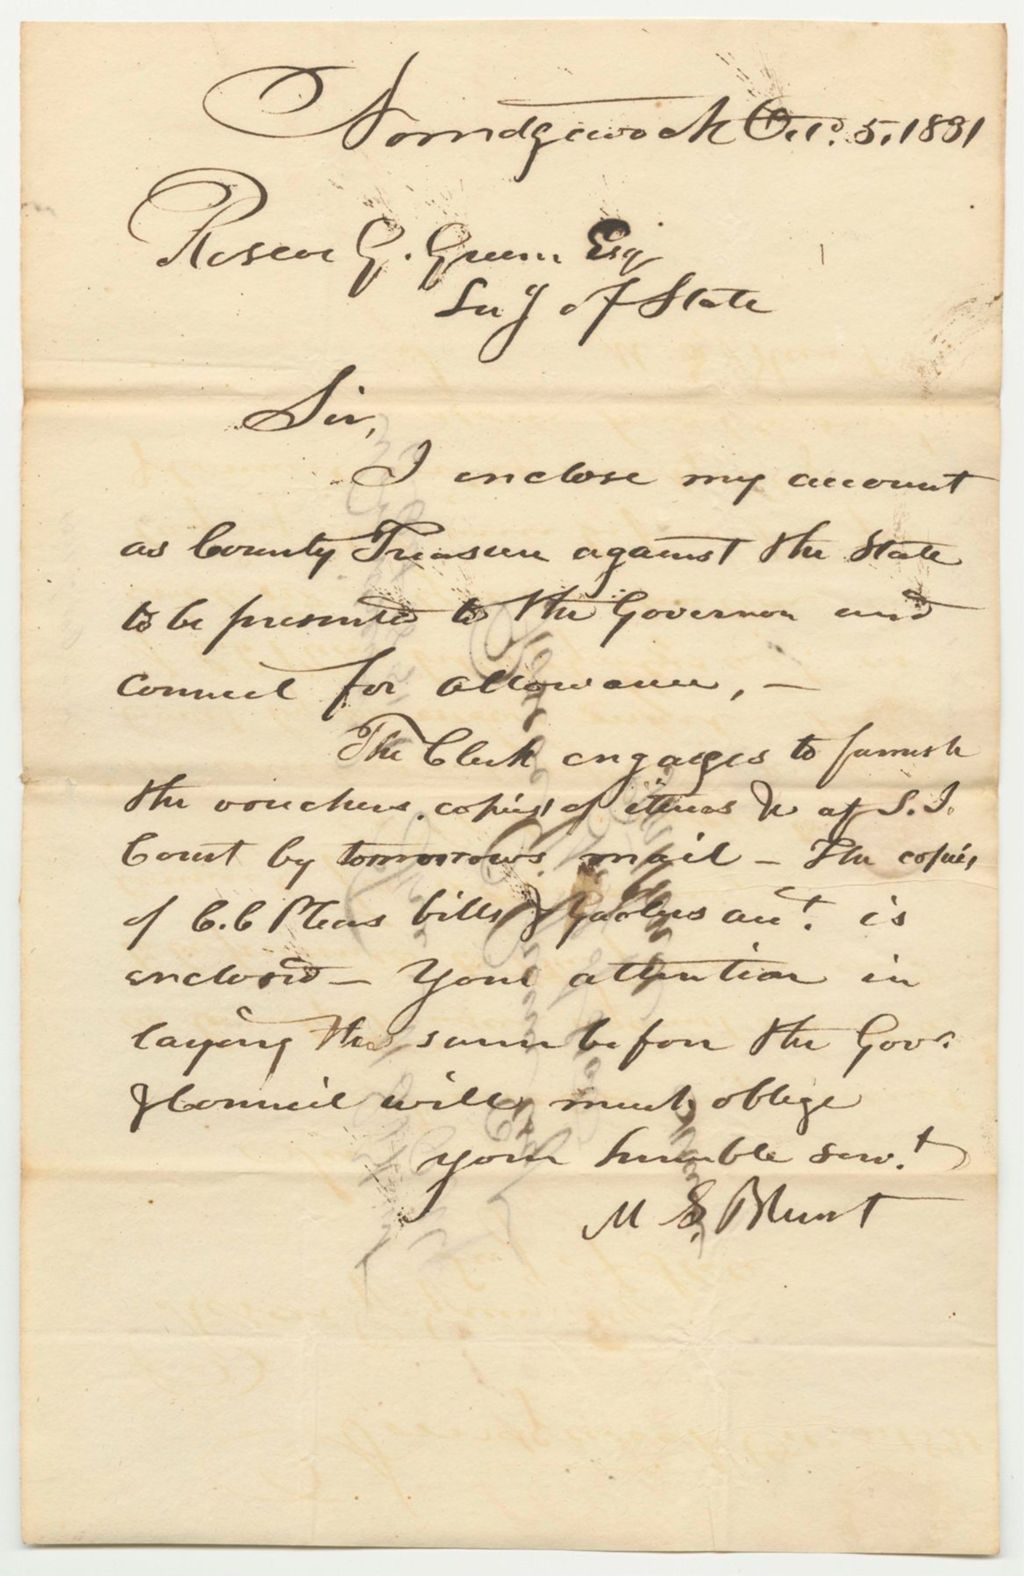 Norridgewock Oct. 5, 1831
Roscoe G. Green Esq
Secy of State
Sir,
I enclose my account
as County Treasurer against the State
to be presented to the Governor and
Council for allowance, —
The Clerk engages to furnish
the vouchers, copies of items &c at S. J.
Court by tomorrows mail — The copies
of C. C Pleas bills & Gaolers acct. is
enclosed — Your attention in
laying the same before the Gov.
& Council will much oblige
your humble servt
M S. Blunt